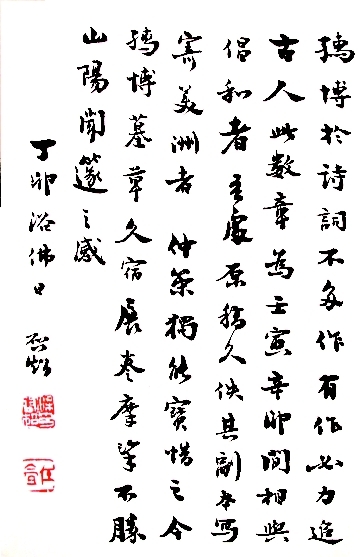 孺博於詩詞不多作有作必力追
古人此數章為壬寅辛卯間相與
倡和者 處原稿久佚其副本寫
寄美洲者 仲獨能寶惜之今
孺博墓草久宿展卷摩挲不勝
山陽聞篴之感
丁卯浴佛日